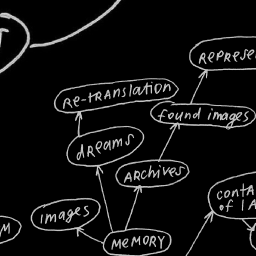 REPRESE
Re-TRANSLATION
found images
dReAMS
ARCHIVES
IMAGES
CONTA
of IA
MEMORY